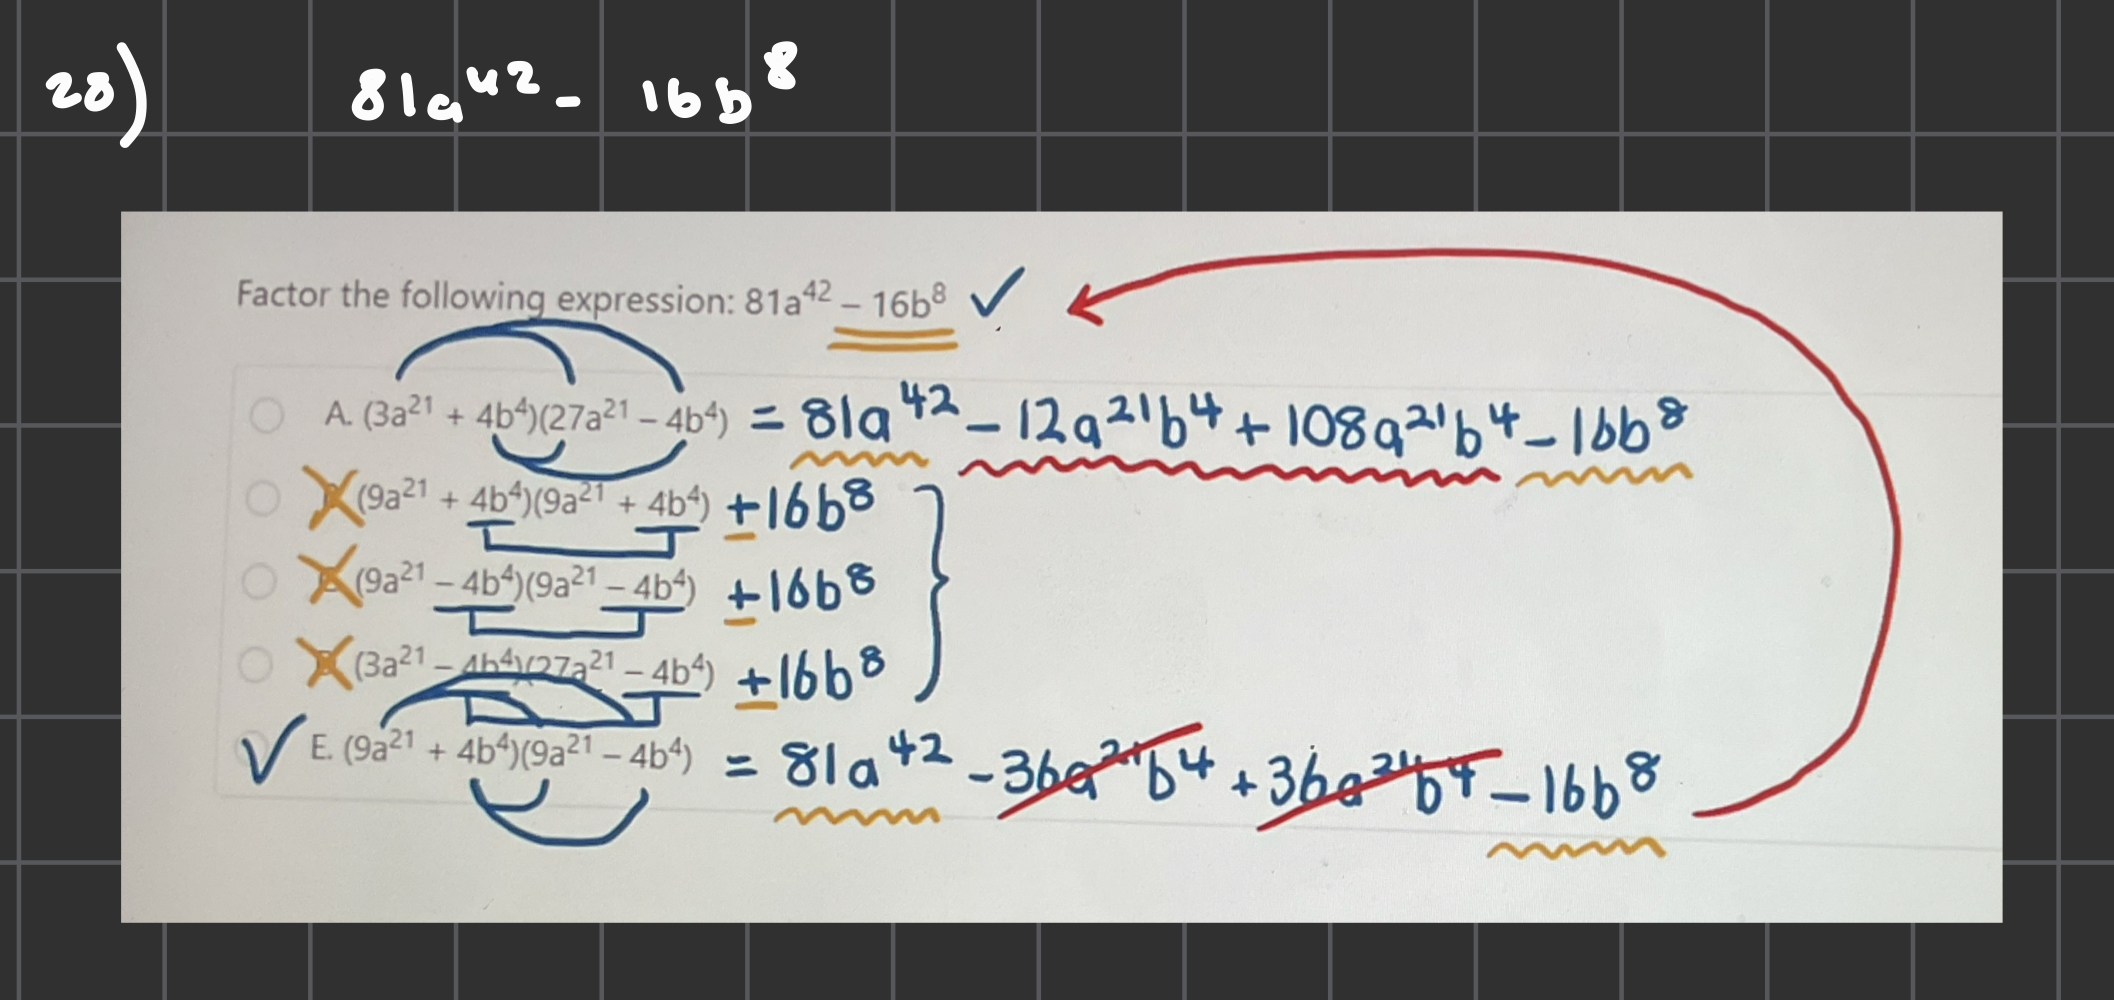 28) 81a⁴² - 16b⁸
Factor the following expression: 81a⁴² – 16b⁸ ✓
A. (3a²¹ + 4b⁴)(27a²¹ – 4b⁴) = 81a⁴² - 12a²¹b⁴ + 108a²¹b⁴ - 16b⁸
(9a²¹ + 4b⁴)(9a²¹ + 4b⁴) +16b⁸
(9a²¹ – 4b⁴)(9a²¹ – 4b⁴) +16b⁸
(3a²¹ – 4b⁴)(27a²¹ – 4b⁴) +16b⁸
✓ E. (9a²¹ + 4b⁴)(9a²¹ – 4b⁴) = 81a⁴² - 36a²¹b⁴ + 36a²¹b⁴ - 16b⁸